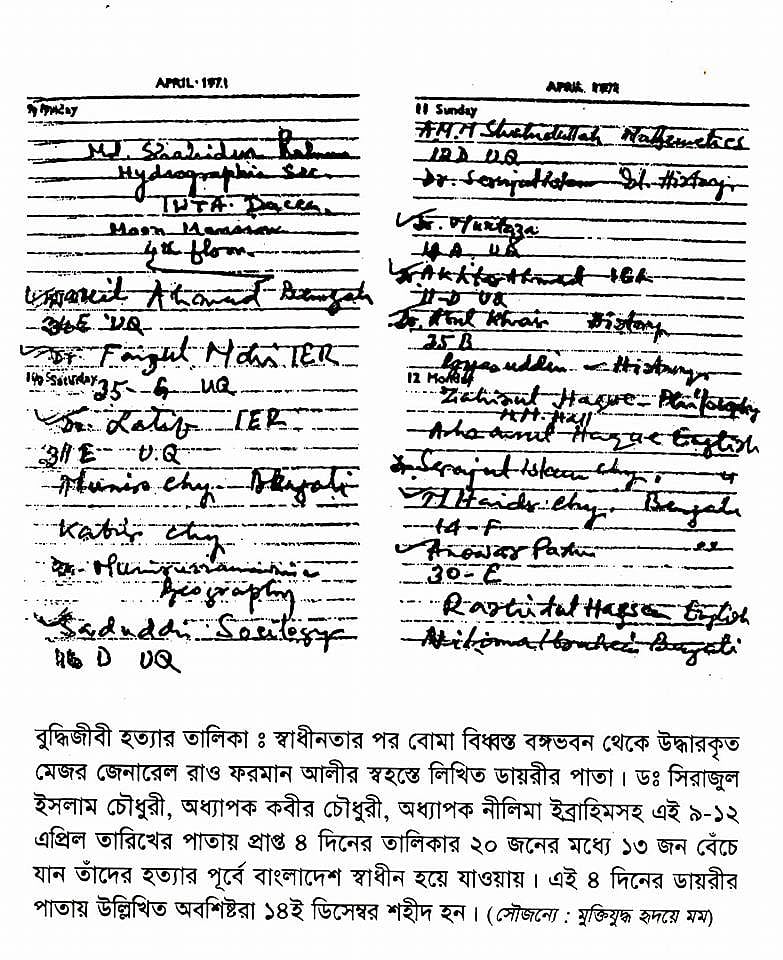 APRIL 1971
9 Friday
Md. Shahidur Rahman
Hydrographic Sec.
IWTA. Dacca
Moon Mansion
4th floor
Ahmad Bengali
36 E UQ
Dr. Faizul Mohi IER
10 Saturday 35-G UQ
Dr. Latif IER
311 E U.Q
Munir Chy. Bengali
Kabir Chy
Geography
Saduddin Sociology
46 D UQ
APRIL
11 Sunday
A.M.M Shahidullah Mathemetics
12D UQ
Dr. Serajul Islam Isl. History
Dr. Murtaza
14 A. UQ
Dr. Akhtar Ahmad IER
11-D UQ
Dr. Abul Khair History
35 B
Gyasuddin - History
12 Monday
Zahirul Haque - Philosophy
H.M. Hall
Ahsanul Haque English
Dr. Serajul Islam Chy. "
M Haider Chy. Bengali
14-F
Anowar Pasha "
30-E
Rashidul Hasan English
Nilima Ibrahim Bengali
বুদ্ধিজীবী হত্যার তালিকা ঃ স্বাধীনতার পর বোমা বিধ্বস্ত বঙ্গভবন থেকে উদ্ধারকৃত
মেজর জেনারেল রাও ফরমান আলীর স্বহস্তে লিখিত ডায়রীর পাতা। ডঃ সিরাজুল
ইসলাম চৌধুরী, অধ্যাপক কবীর চৌধুরী, অধ্যাপক নীলিমা ইব্রাহিমসহ এই ৯-১২
এপ্রিল তারিখের পাতায় প্রাপ্ত ৪ দিনের তালিকার ২০ জনের মধ্যে ১৩ জন বেঁচে
যান তাঁদের হত্যার পূর্বে বাংলাদেশ স্বাধীন হয়ে যাওয়ায়। এই ৪ দিনের ডায়রীর
পাতায় উল্লিখিত অবশিষ্টরা ১৪ই ডিসেম্বর শহীদ হন। (সৌজন্যে : মুক্তিযুদ্ধ হৃদয়ে মম)